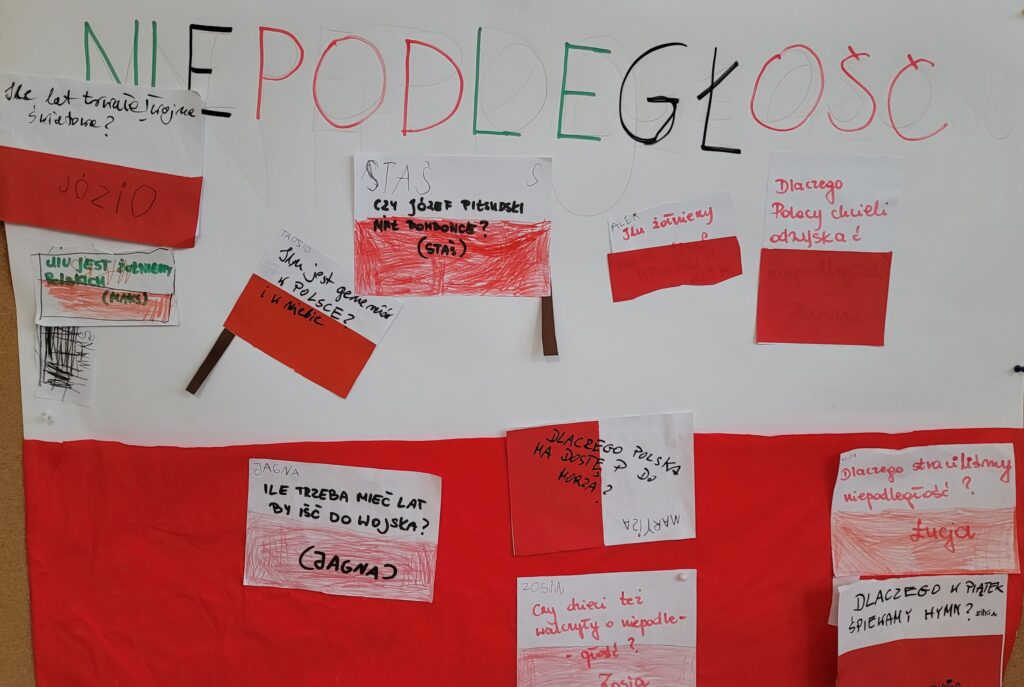 NIEPODLEGŁOŚĆ
Ile lat trwała I wojna
światowa?
JÓZIO
STAŚ S
CZY JÓZEF PIŁSUDSKI
MIAŁ
(STAŚ)
ALEK
Ilu żołnierzy
Dlaczego
Polacy chcieli
odzyskać
niepodległość
ILU JEST ŻOŁNIERZY
POLSKICH
(MAKS)
TADZIO
Ilu jest generałów
W POLSCE?
i u
JAGNA
ILE TRZEBA MIEĆ LAT
BY IŚĆ DO WOJSKA?
(JAGNA)
DLACZEGO POLSKA
MA DOSTĘP DO
MORZA?
Dlaczego straciliśmy
niepodległość?
Łucja
ZOSIA
Czy dzieci też
walczyły o niepodle-
-głość?
Zosia
DLACZEGO W PIĄTEK
ŚPIEWAMY HYMN?